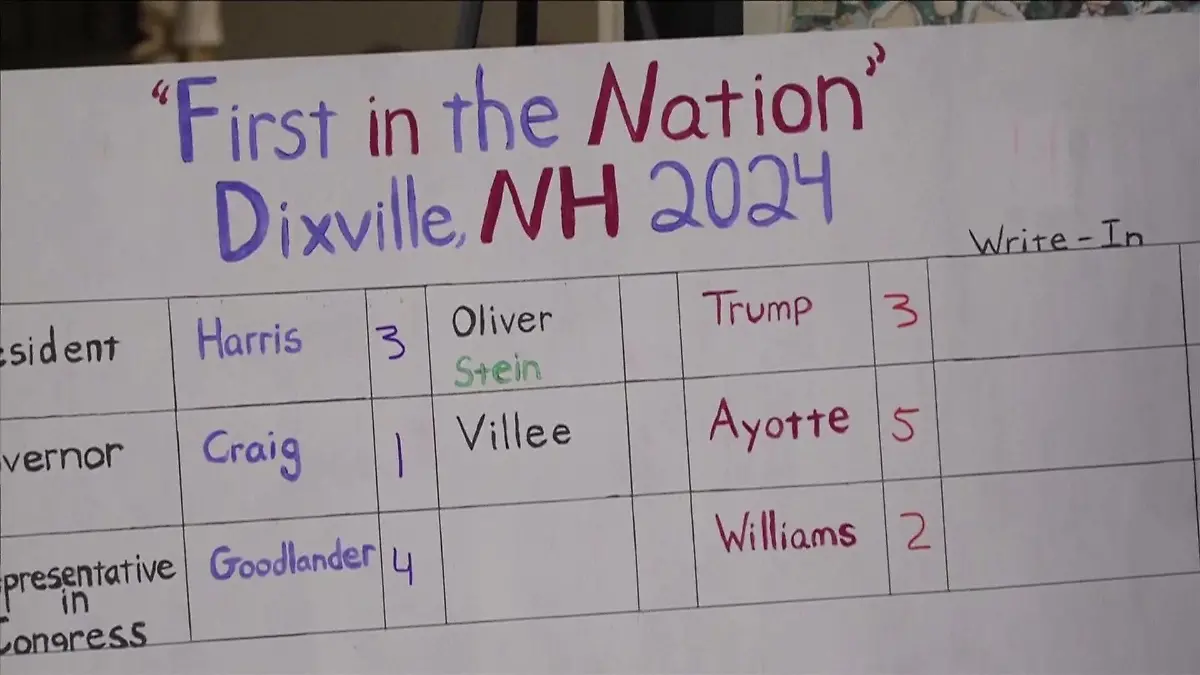 "First in the Nation"
Dixville, NH 2024
Write-In
esident Harris 3 Oliver Trump 3
Stein
vernor Craig 1 Villee Ayotte 5
presentative Goodlander 4 Williams 2
in
Congress